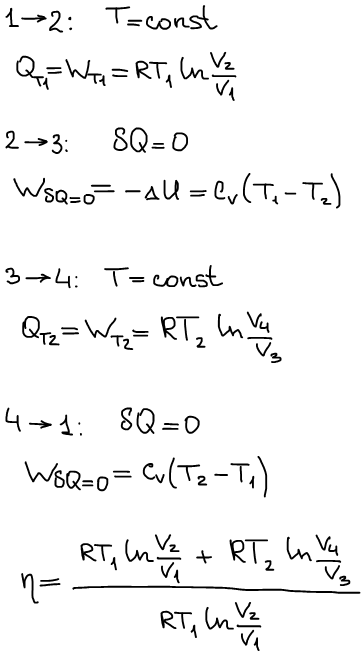 1→2: T=const
Q_T1=W_T1=RT₁ ln V₂/V₁
2→3: δQ=0
W_δQ=0=-ΔU=C_v(T₁-T₂)
3→4: T=const
Q_T2=W_T2=RT₂ ln V₄/V₃
4→1: δQ=0
W_δQ=0=C_v(T₂-T₁)
η=(RT₁ ln V₂/V₁ + RT₂ ln V₄/V₃)/(RT₁ ln V₂/V₁)